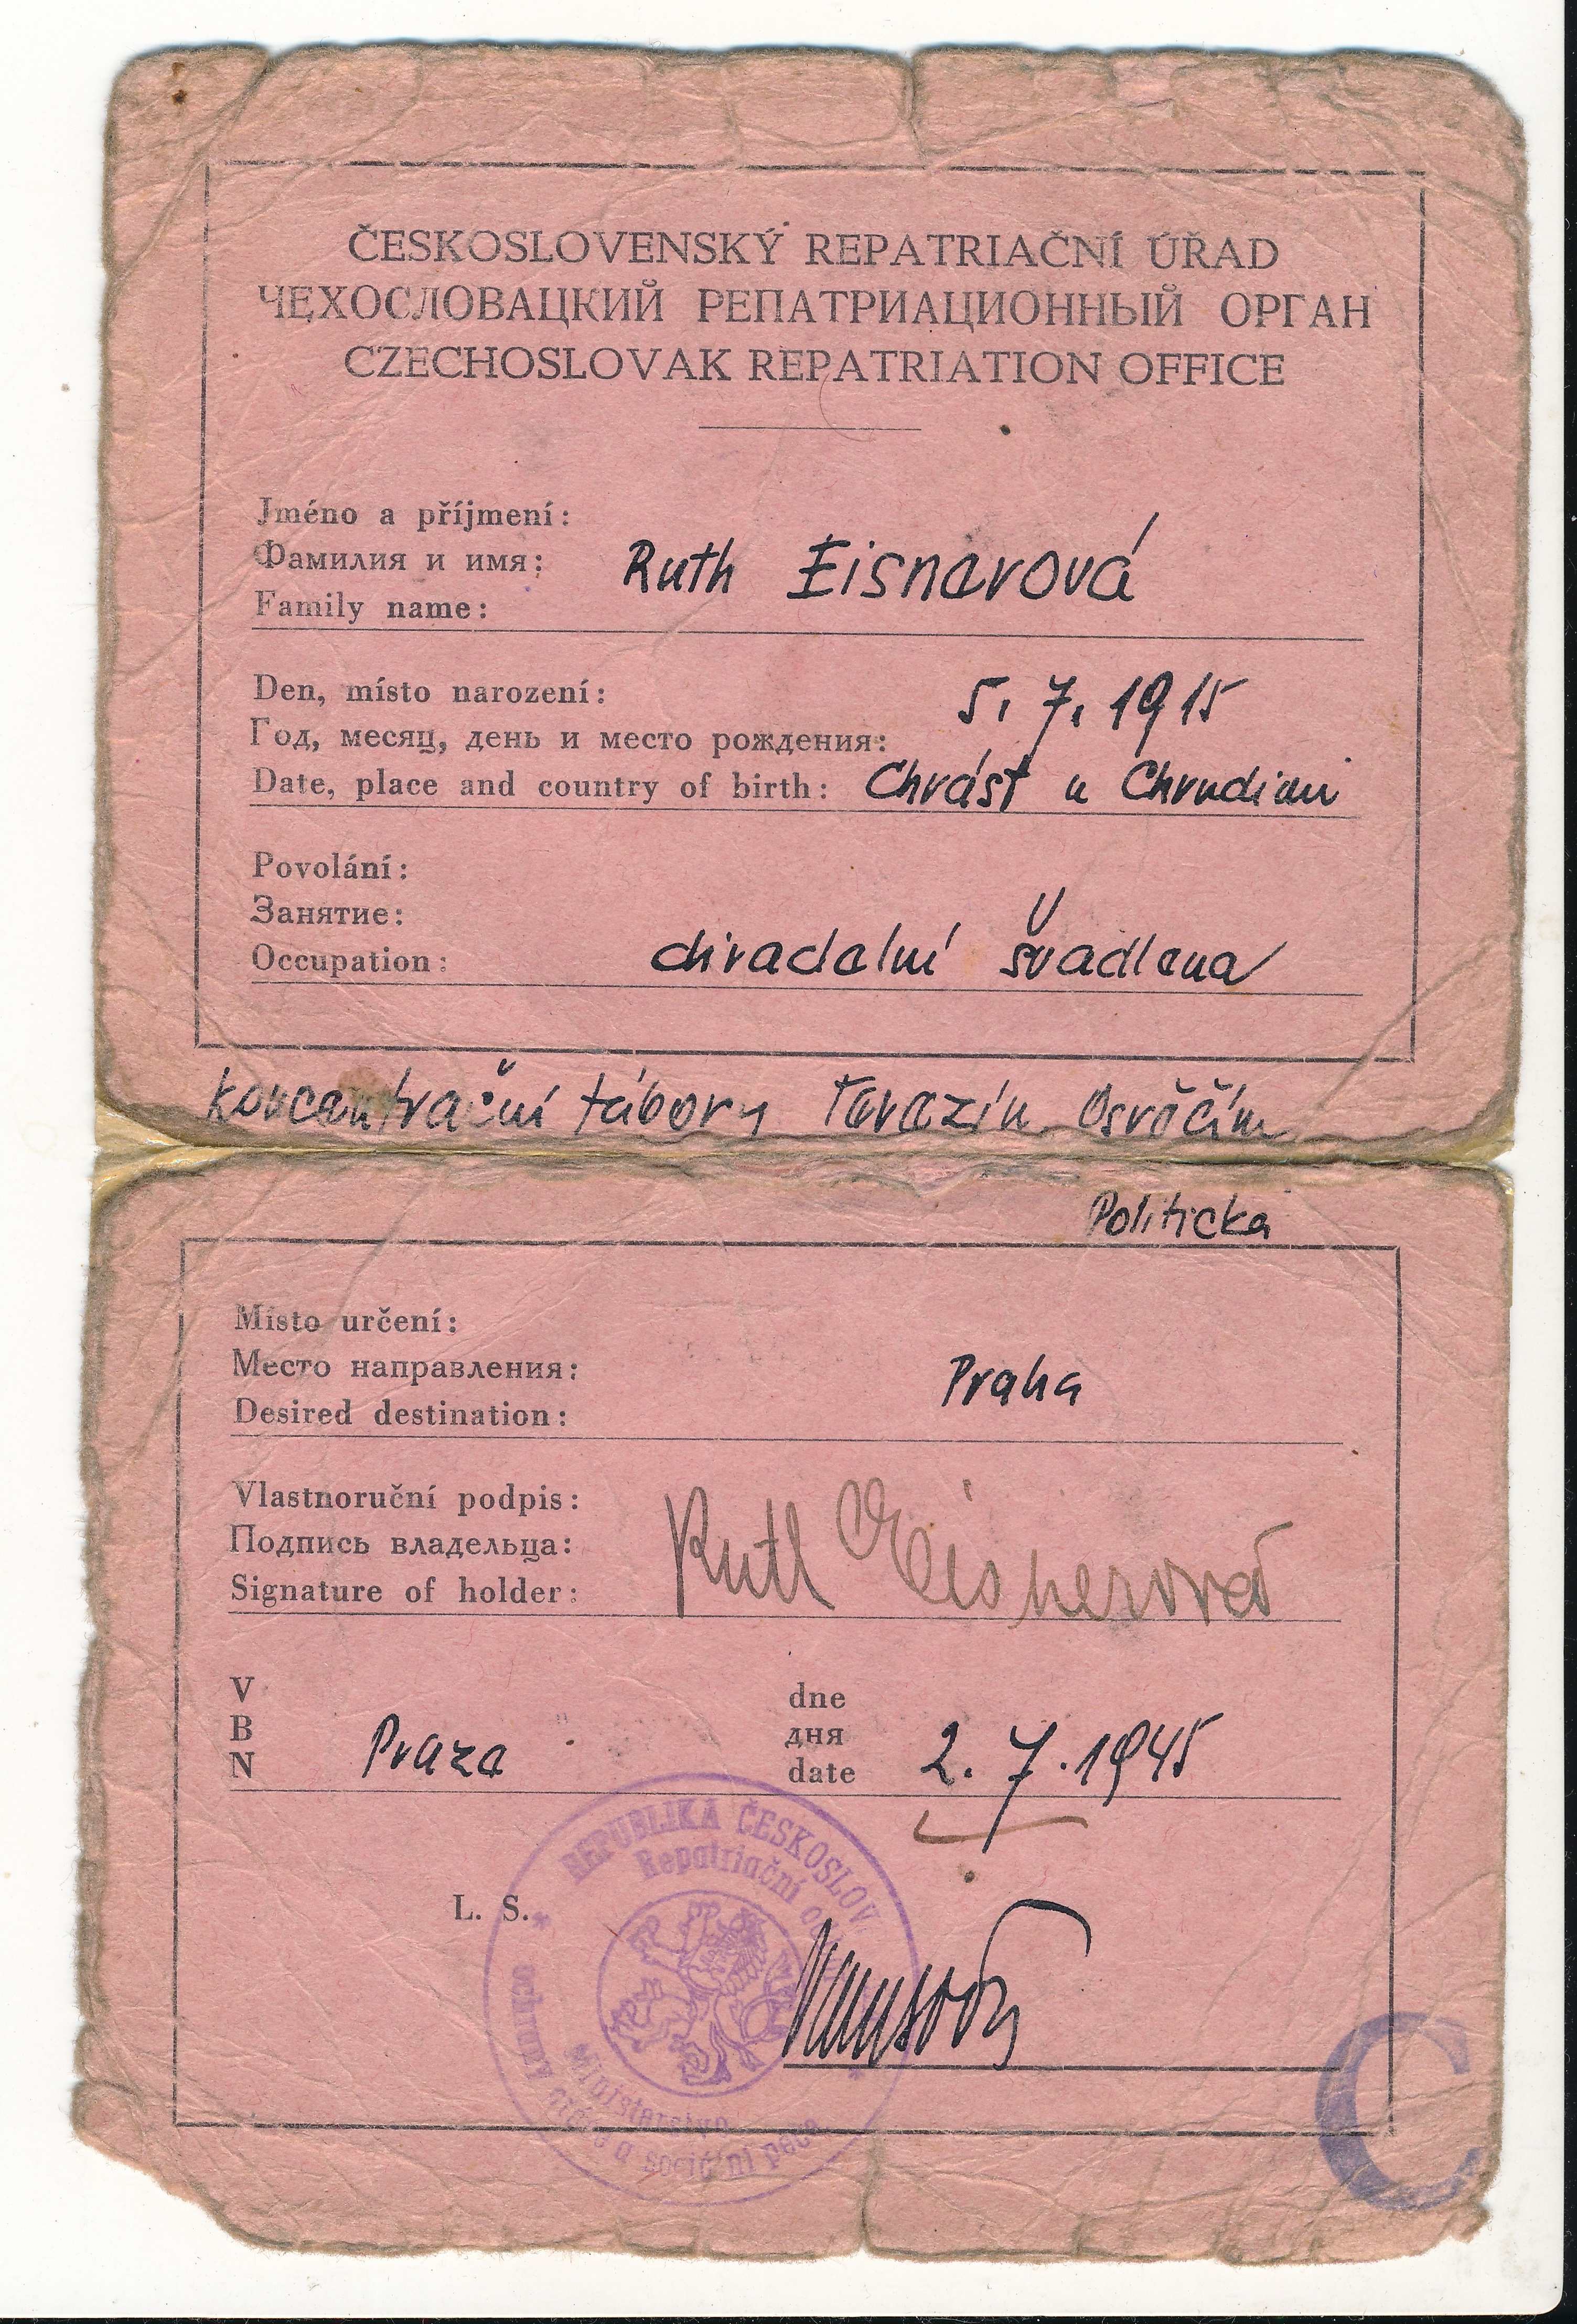 ČESKOSLOVENSKÝ REPATRIAČNÍ ÚŘAD
ЧЕХОСЛОВАЦКИЙ РЕПАТРИАЦИОННЫЙ ОРГАН
CZECHOSLOVAK REPATRIATION OFFICE
Jméno a příjmení:
Фамилия и имя: Ruth Eisnerová
Family name:
Den, místo narození: 5. 7. 1915
Год, месяц, день и место рождения:
Date, place and country of birth: Chrást u Chrudimi
Povolání:
Занятие:
Occupation: divadelní švadlena
koncentrační tábory Terezín Osvěčím
Politická
Místo určení:
Место направления: Praha
Desired destination:
Vlastnoruční podpis:
Подпись владельца: Ruth Eisnerová
Signature of holder:
V dne
В дня
N Praze date 2. 7. 1945
REPUBLIKA ČESKOSLOV
Repatriační
L. S.
Ministerstvo
ochrany práce a sociální péče
C